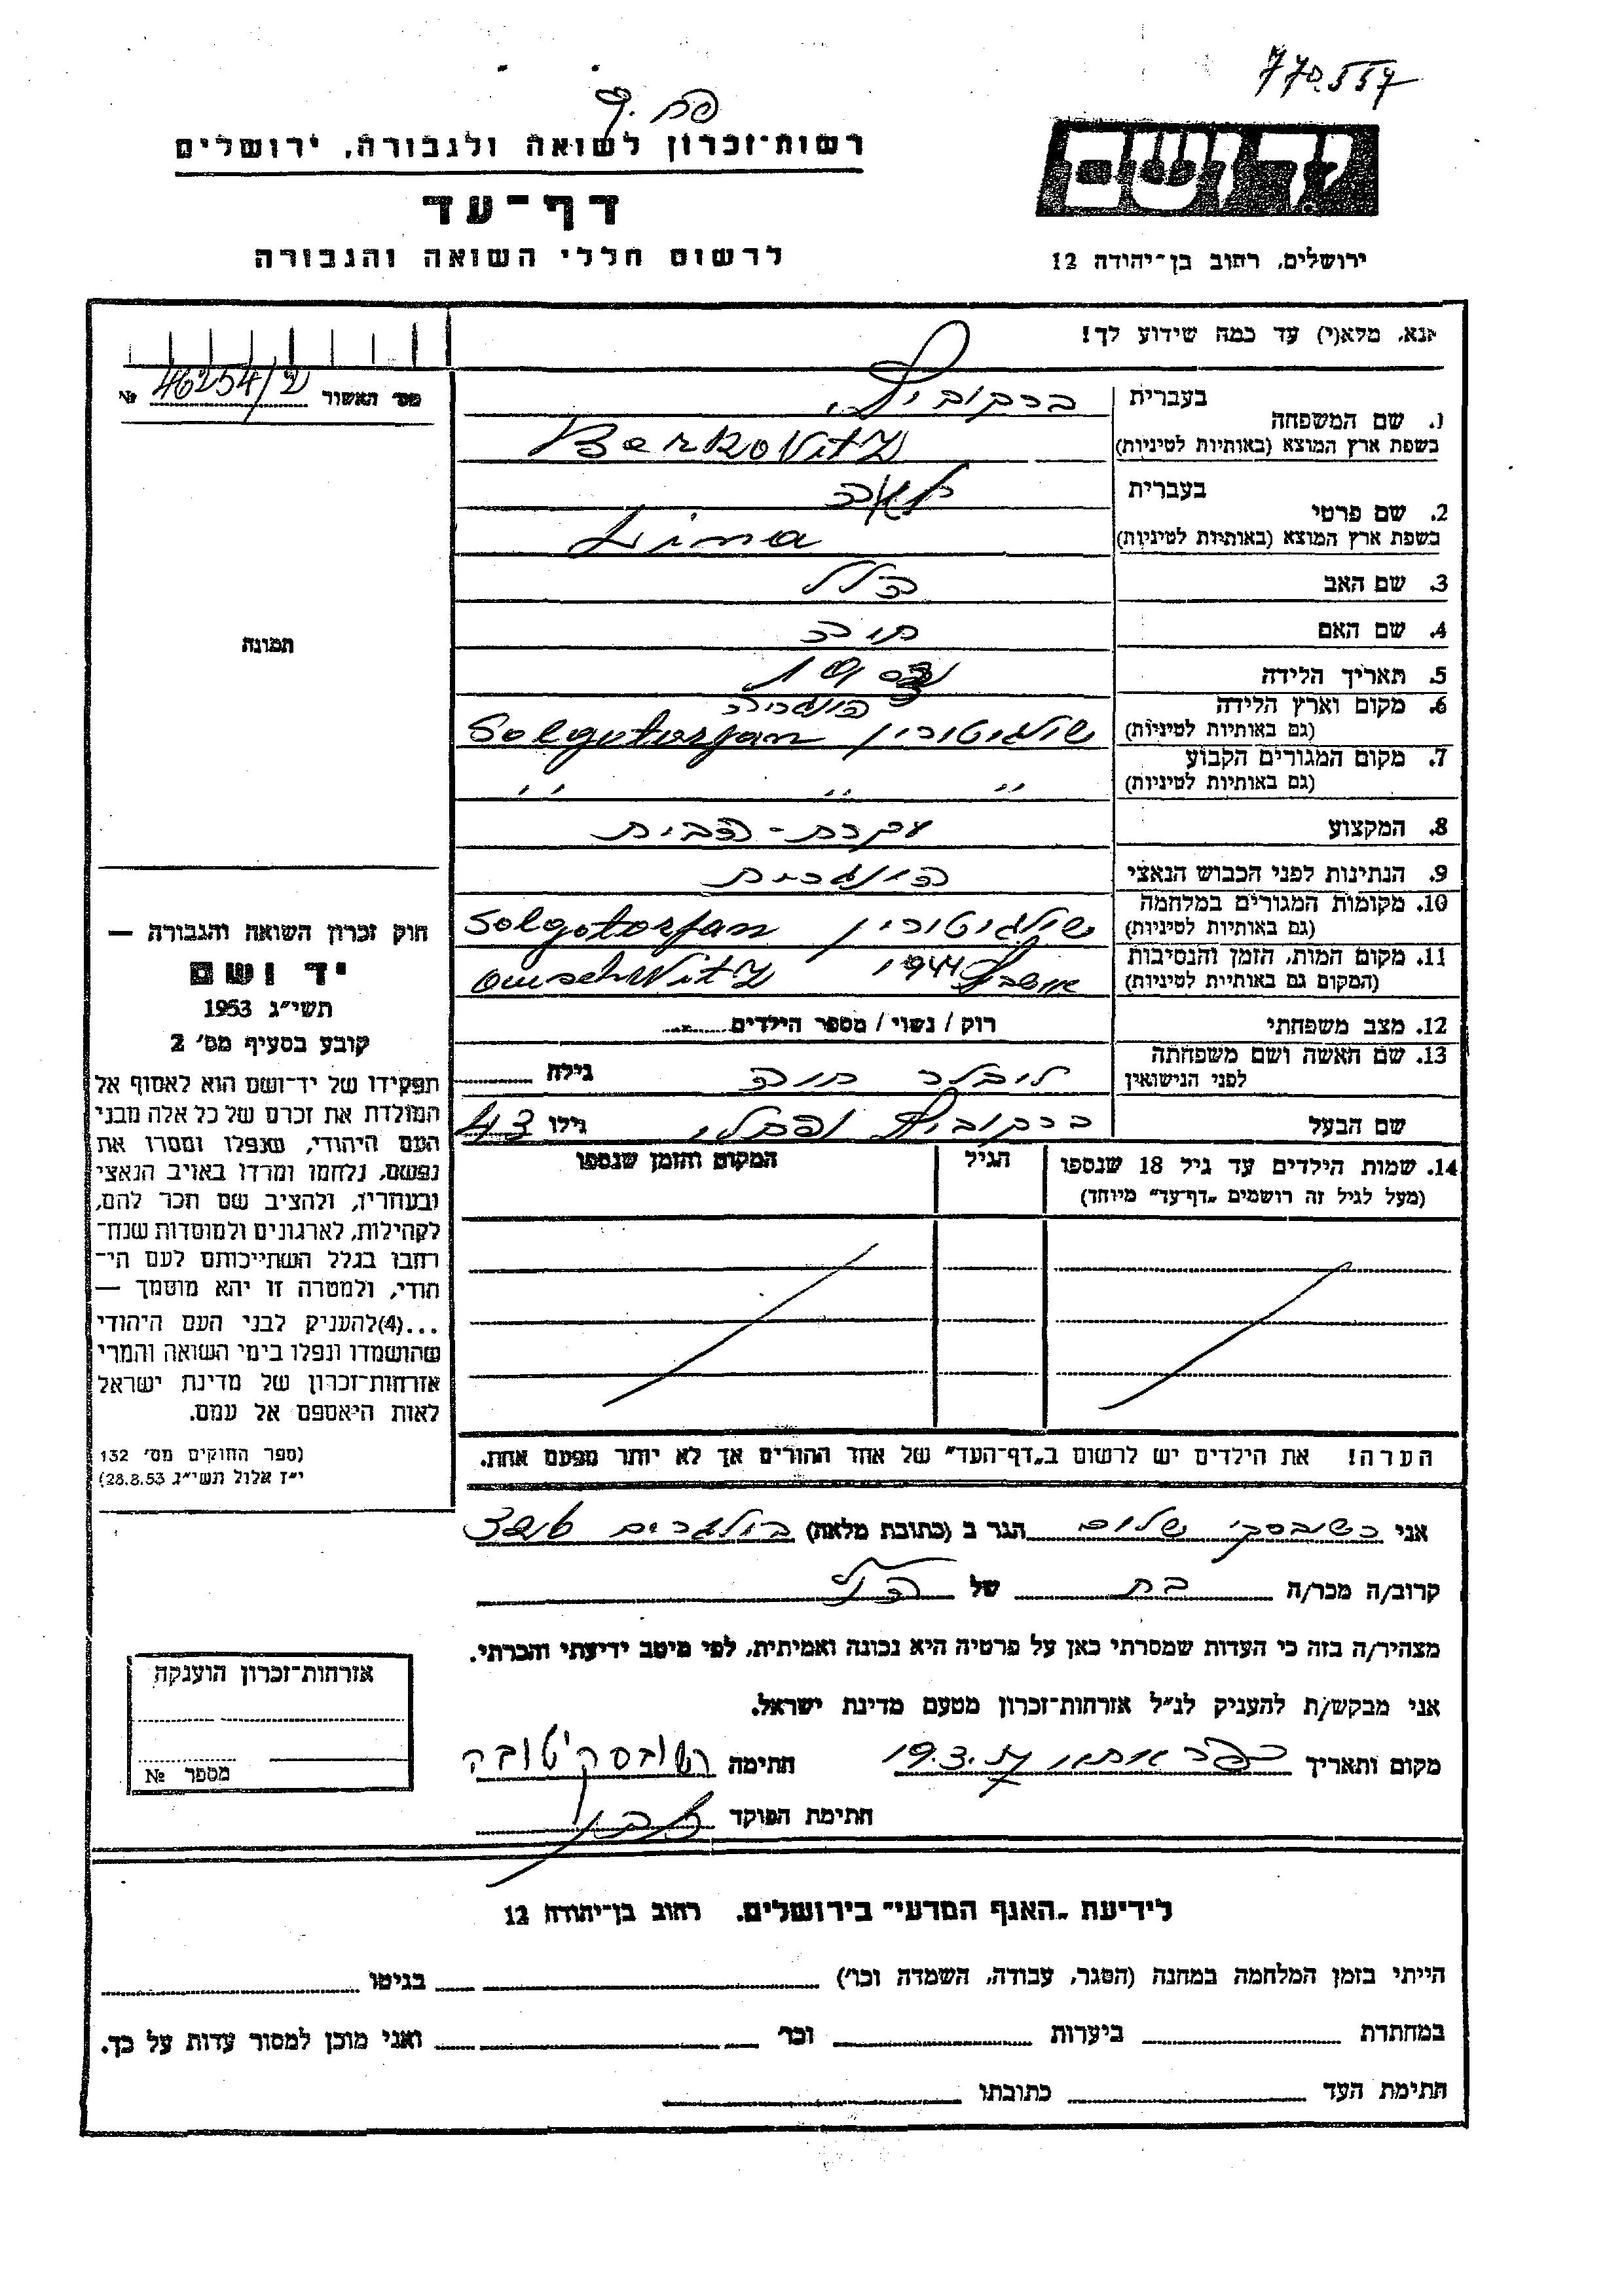 770.557
רשות-זכרון לשואה ולגבורה, ירושלים
דף-עד
לרשום חללי השואה והגבורה
יד ושם
ירושלים, רחוב בן-יהודה 12
אנא, מלא(י) עד כמה שידוע לך!
מס' האשור 46254/2 №
1. שם המשפחה בעברית ברקוביץ
בשפת ארץ המוצא (באותיות לטיניות) Berkovitz
2. שם פרטי בעברית לאה
בשפת ארץ המוצא (באותיות לטיניות) Lina
3. שם האב הלל
4. שם האם חוה
5. תאריך הלידה
6. מקום וארץ הלידה הונגריה
(גם באותיות לטיניות) שולגוטורין Solgotorjan
7. מקום המגורים הקבוע
(גם באותיות לטיניות) " " "
8. המקצוע עקרת-הבית
9. הנתינות לפני הכבוש הנאצי הונגרית
10. מקומות המגורים במלחמה
(גם באותיות לטיניות) שולגיטורין Solgotorjan
11. מקום המות, הזמן והנסיבות
(המקום גם באותיות לטיניות) אושביץ 1944 ouschwitz
12. מצב משפחתי רוק / נשוי / מספר הילדים
13. שם האשה ושם משפחתה
לפני הנישואין חוה גילה
שם הבעל ברקוביץ נפתלי גילו 43
14. שמות הילדים עד גיל 18 שנספו הגיל המקום והזמן שנספו
(מעל לגיל זה רושמים "דף-עד" מיוחד)
הערה! את הילדים יש לרשום ב"דף-העד" של אחד ההורים אך לא יותר מפעם אחת.
תמונה
חוק זכרון השואה והגבורה —
יד ושם
תשי"ג 1953
קובע בסעיף מס' 2
תפקידו של יד-ושם הוא לאסוף אל
המולדת את זכרם של כל אלה מבני
העם היהודי, שנפלו ומסרו את
נפשם, נלחמו ומרדו באויב הנאצי
ובעוזריו, ולהציב שם וזכר להם,
לקהילות, לארגונים ולמוסדות שנח-
רבו בגלל השתייכותם לעם הי-
הודי, ולמטרה זו יהא מוסמך —
...(4)להעניק לבני העם היהודי
שהושמדו ונפלו בימי השואה והמרי
אזרחות-זכרון של מדינת ישראל
לאות היאספם אל עמם.
(ספר החוקים מס' 132
י"ז אלול תשי"ג 28.8.53)
אני שלום הגר ב (כתובת מלאה)
קרוב/ה מכר/ה בת של הנ"ל
מצהיר/ה בזה כי העדות שמסרתי כאן על פרטיה היא נכונה ואמיתית, לפי מיטב ידיעתי והכרתי.
אני מבקש/ת להעניק לנ"ל אזרחות-זכרון מטעם מדינת ישראל.
מקום ותאריך כפר אתא 19.3.57 חתימה
חתימת הפוקד
אזרחות-זכרון הוענקה
מספר №
לידיעת "האגף המדעי" בירושלים. רחוב בן-יהודה 12
הייתי בזמן המלחמה במחנה (הסגר, עבודה, השמדה וכו') בגיטו
במחתרת ביערות וכו' ואני מוכן למסור עדות על כך.
חתימת העד כתובתו